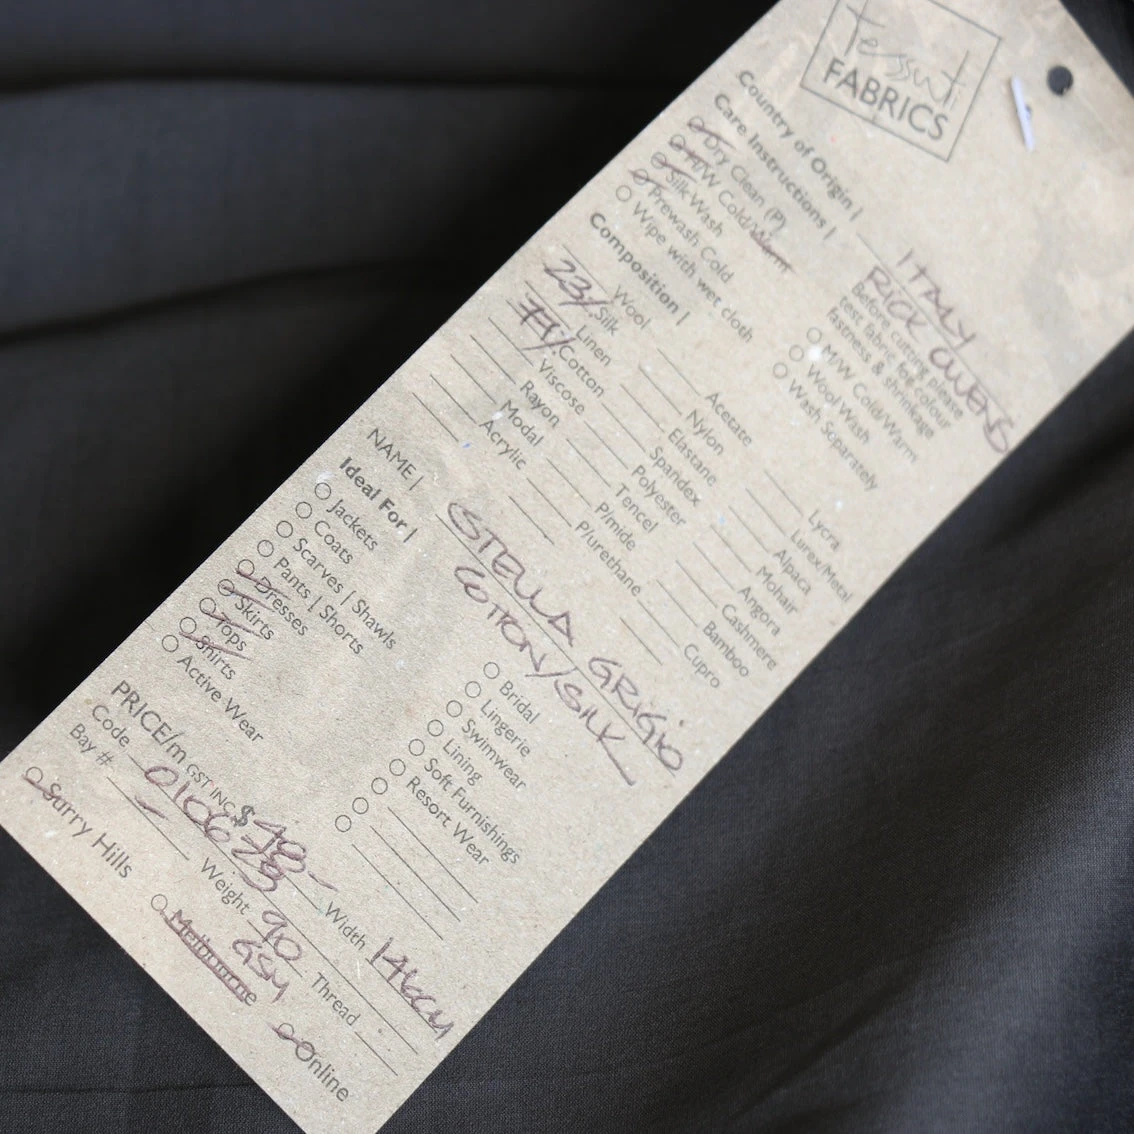 Tessuti
FABRICS
Country of Origin | ITALY
Care Instructions | RICK OWENS
Dry Clean (P)
H/W Cold/Warm
Silk Wash
Prewash Cold
Wipe with wet cloth
Before cutting please
test fabric for colour
fastness & shrinkage
M/W Cold/Warm
Wool Wash
Wash Separately
Composition |
Wool
23% Silk
Linen
77% Cotton
Viscose
Rayon
Modal
Acrylic
Acetate
Nylon
Elastane
Spandex
Polyester
Tencel
P/mide
P/urethane
Lycra
Lurex/Metal
Alpaca
Mohair
Angora
Cashmere
Bamboo
Cupro
NAME | STELLA GRIGIO
COTTON/SILK
Ideal For |
Jackets
Coats
Scarves | Shawls
Pants | Shorts
Dresses
Skirts
Tops
Shirts
Active Wear
Bridal
Lingerie
Swimwear
Lining
Soft Furnishings
Resort Wear
PRICE/m GST INC. $ 48 –
Code 010623 Width 146CM
Bay # – Weight 90 GSM Thread
Surry Hills Melbourne Online